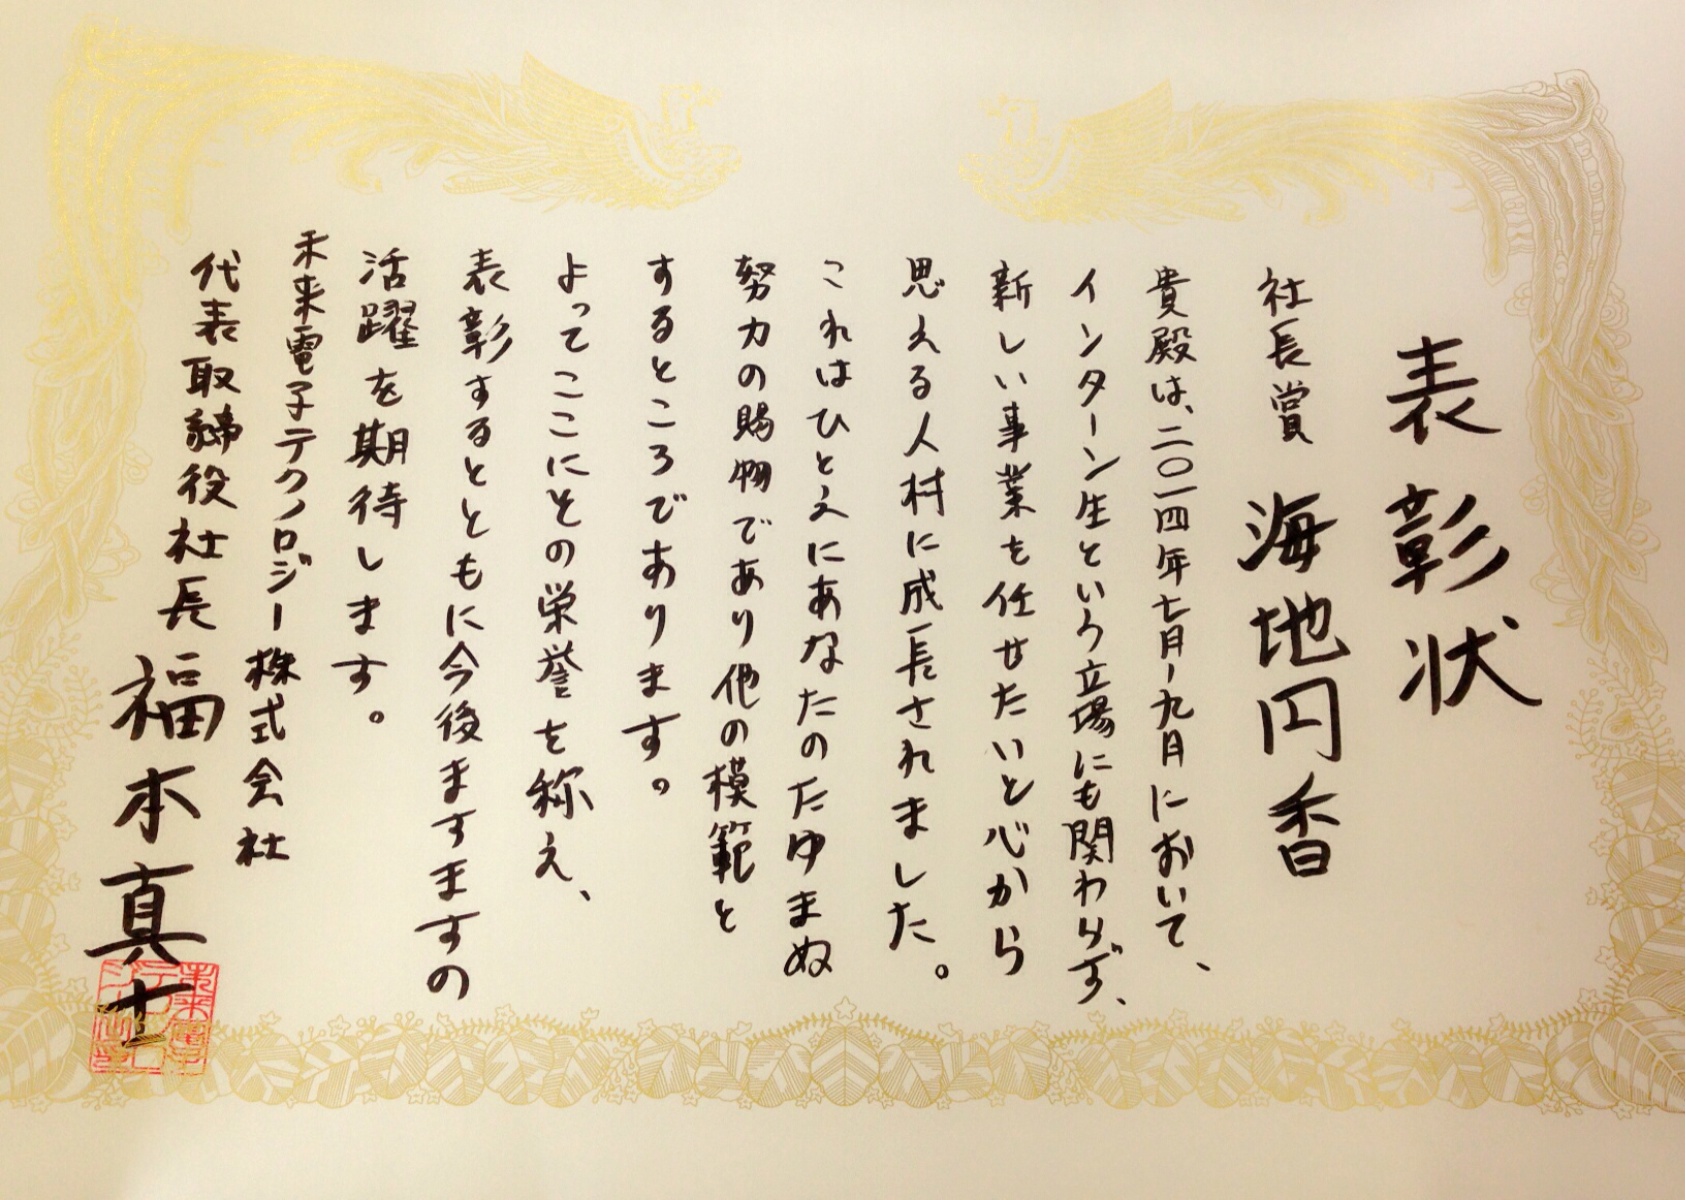 表彰状
社長賞 海地円香
貴殿は、二〇一四年七月~九月において、
インターン生という立場にも関わらず、
新しい事業を任せたいと心から
思える人材に成長されました。
これはひとえにあなたのたゆまぬ
努力の賜物であり他の模範と
するところであります。
よってここにその栄誉を称え、
表彰するとともに今後ますますの
活躍を期待します。
未来電子テクノロジー株式会社
代表取締役社長 福本真士